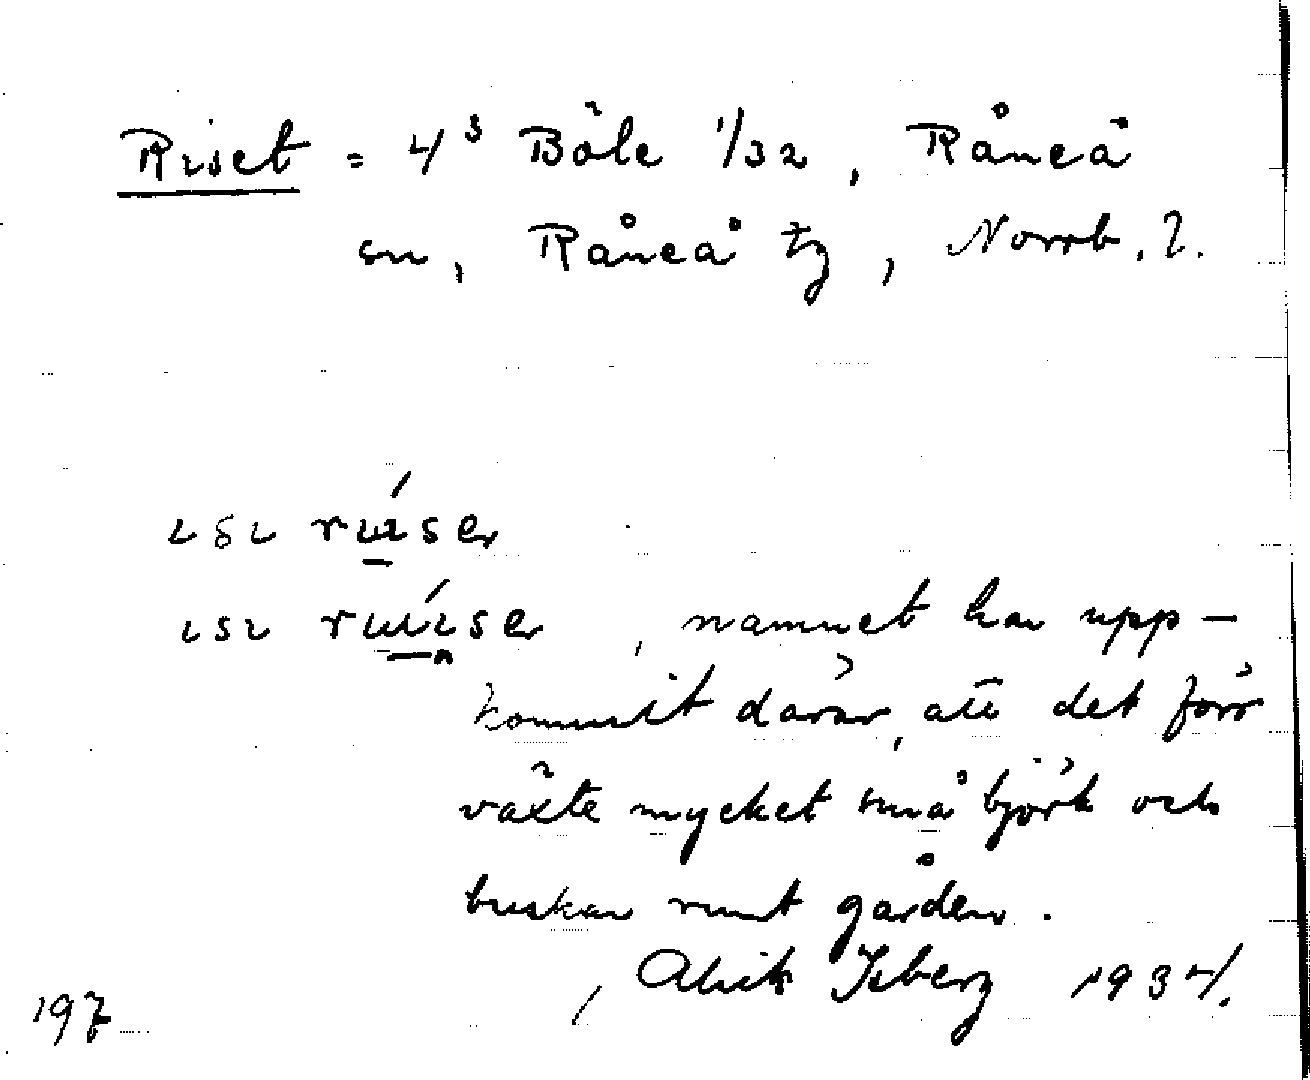 Riset = 4³ Böle 1/32, Råneå
sn, Råneå tg, Norrb. l.
namnet har upp-
kommit därav, att det förr
växte mycket små björk och
buskar runt gården.
Isberg 1934.
197